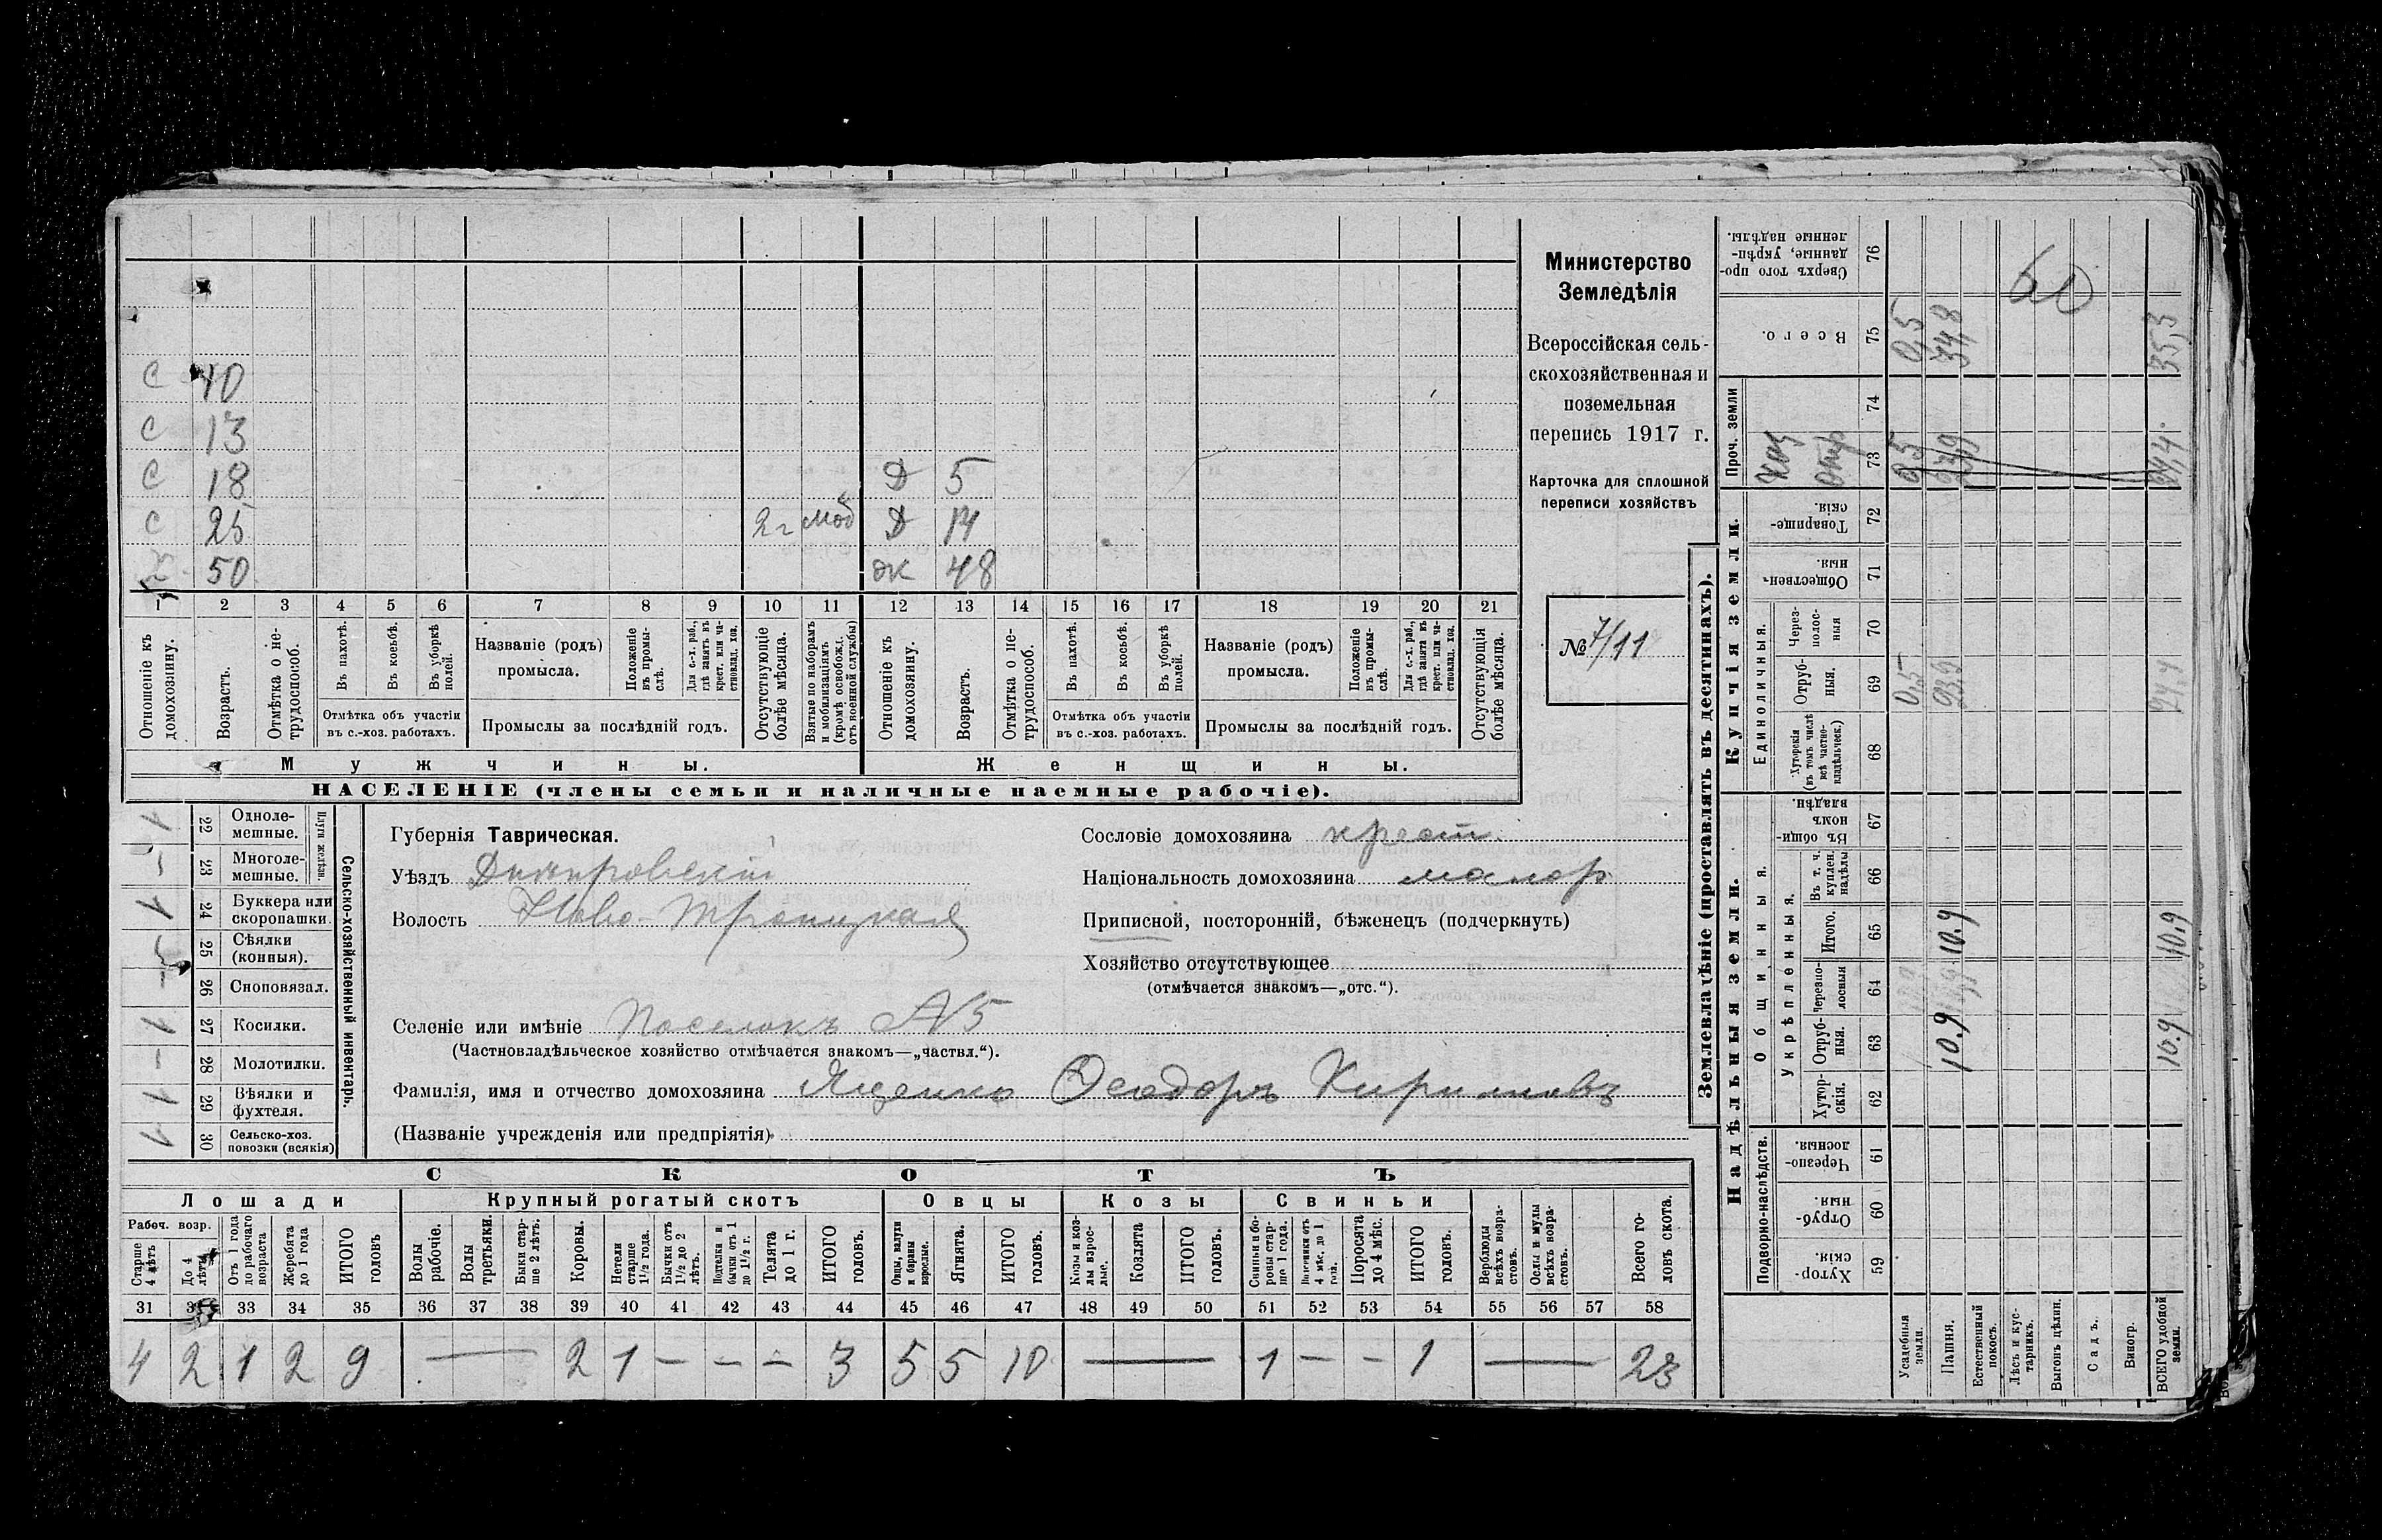 С 10
С 13
С 18 Д 5
С 25 2 г моб Д 14
50 ж 48
1 2 3 4 5 6 7 8 9 10 11 12 13 14 15 16 17 18 19 20 21
Отношеніе къ домохозяину.
Возрастъ.
Отмѣтка о не-
трудоспособ.
Въ пахотѣ.
Въ косьбѣ.
Въ уборкѣ
полей.
Отмѣтка объ участіи
въ с.-хоз. работахъ.
Названіе (родъ)
промысла.
Положеніе
въ промы-
слѣ.
Для с.-х. раб.,
гдѣ занятъ въ
крест. или ча-
стновлад. хоз.
Промыслы за послѣдній годъ.
Отсутствующіе
болѣе мѣсяца.
Взятые по наборамъ
и мобилизаціямъ
(кромѣ освобожд.
отъ военной службы)
Отношеніе къ
домохозяину.
Возрастъ.
Отмѣтка о не-
трудоспособ.
Въ пахотѣ.
Въ косьбѣ.
Въ уборкѣ
полей.
Отмѣтка объ участіи
въ с.-хоз. работахъ.
Названіе (родъ)
промысла.
Положеніе
въ промы-
слѣ.
Для с.-х. раб.,
гдѣ занята въ
крест. или ча-
стновлад. хоз.
Промыслы за послѣдній годъ.
Отсутствующія
болѣе мѣсяца.
Мужчины.
Женщины.
НАСЕЛЕНІЕ (члены семьи и наличные наемные рабочіе).
Министерство
Земледѣлія
Всероссійская сель-
скохозяйственная и
поземельная
перепись 1917 г.
Карточка для сплошной
переписи хозяйствъ
№ 7/11
Сельско-хозяйственный инвентарь.
Плуги желѣзн.
1 22 Одноле-
мешные.
- 23 Многоле-
мешные.
1 24 Буккера или
скоропашки.
25 Сѣялки
(конныя).
- 26 Сноповязал.
1 27 Косилки.
- 28 Молотилки.
1 29 Вѣялки и
фухтеля.
1 30 Сельско-хоз.
повозки (всякія)
Губернія Таврическая.
Уѣздъ Днѣпровскій
Волость Ново-Троицкая
Селеніе или имѣніе Поселокъ №5
(Частновладѣльческое хозяйство отмѣчается знакомъ—„частвл.“).
Фамилія, имя и отчество домохозяина Яценко Ѳеодоръ Кириловъ
(Названіе учрежденія или предпріятія)
Сословіе домохозяина крест.
Національность домохозяина малор
Приписной, посторонній, бѣженецъ (подчеркнуть)
Хозяйство отсутствующее
(отмѣчается знакомъ—„отс.“).
СКОТЪ
Лошади Крупный рогатый скотъ Овцы Козы Свиньи
Рабоч. возр.
Старше
4 лѣтъ
До 4
лѣтъ
Отъ 1 года
до рабочаго
возраста
Жеребята
до 1 года
ИТОГО
головъ
Волы
рабочіе.
Волы
третьяки.
Быки стар-
ше 2 лѣтъ.
Коровы.
Нетели
старше
1½ года.
Бычки отъ
1½ до 2
лѣтъ.
Подтелки и
бычки отъ 1
до 1½ г.
Телята
до 1 г.
ИТОГО
головъ.
Овцы, валухи
и бараны
взрослые.
Ягнята.
ИТОГО
головъ.
Козы и коз-
лы взрос-
лые.
Козлята
ИТОГО
головъ.
Свиньи и бо-
ровы стар-
ше 1 года.
Подсвинки отъ
4 мѣс. до 1
года.
Поросята
до 4 мѣс.
ИТОГО
головъ.
Верблюды
всѣхъ возра-
стовъ.
Ослы и мулы
всѣхъ возра-
стовъ.
Всего го-
ловъ скота.
31 33 34 35 36 37 38 39 40 41 42 43 44 45 46 47 48 49 50 51 52 53 54 55 56 57 58
4 2 1 2 9 — 2 1 - - - 3 5 5 10 — 1 - - 1 — 23
Землевладѣніе (проставлять въ десятинахъ).
Надѣльныя земли.
Купчія земли.
Проч. земли
Подворно-наслѣдств.
Общинныя.
Укрѣпленныя.
Единоличныя.
Хутор-
скія.
59
Отруб-
ныя.
60
Черезпо-
лосныя.
61
Хутор-
скія.
62
Отруб-
ныя.
63 10.9 10.9
Черезпо-
лосныя
64
Итого.
65 10.9 10.9
Въ т. ч.
куплен.
надѣлы
66
Въ общин-
номъ
владѣн.
67
Хуторскія
(въ томъ числѣ
всѣ частно-
владѣльческ.)
68
Отруб-
ныя.
69 0,5 23,9 24,4
Через-
полос-
ныя
70
Обществен-
ныя.
71
Товарище-
скія.
72
73 0,5 23,9 24,4
74
Всего.
75 0,5 34,8 35,3
Сверхъ того про-
данные, укрѣп-
ленные надѣлы.
76
60
Усадебныя
земли.
Пашня.
Естественный
покосъ.
Лѣсъ и кус-
тарникъ.
Выгонъ цѣлин.
Садъ.
Виногр.
ВСЕГО удобной
земли.